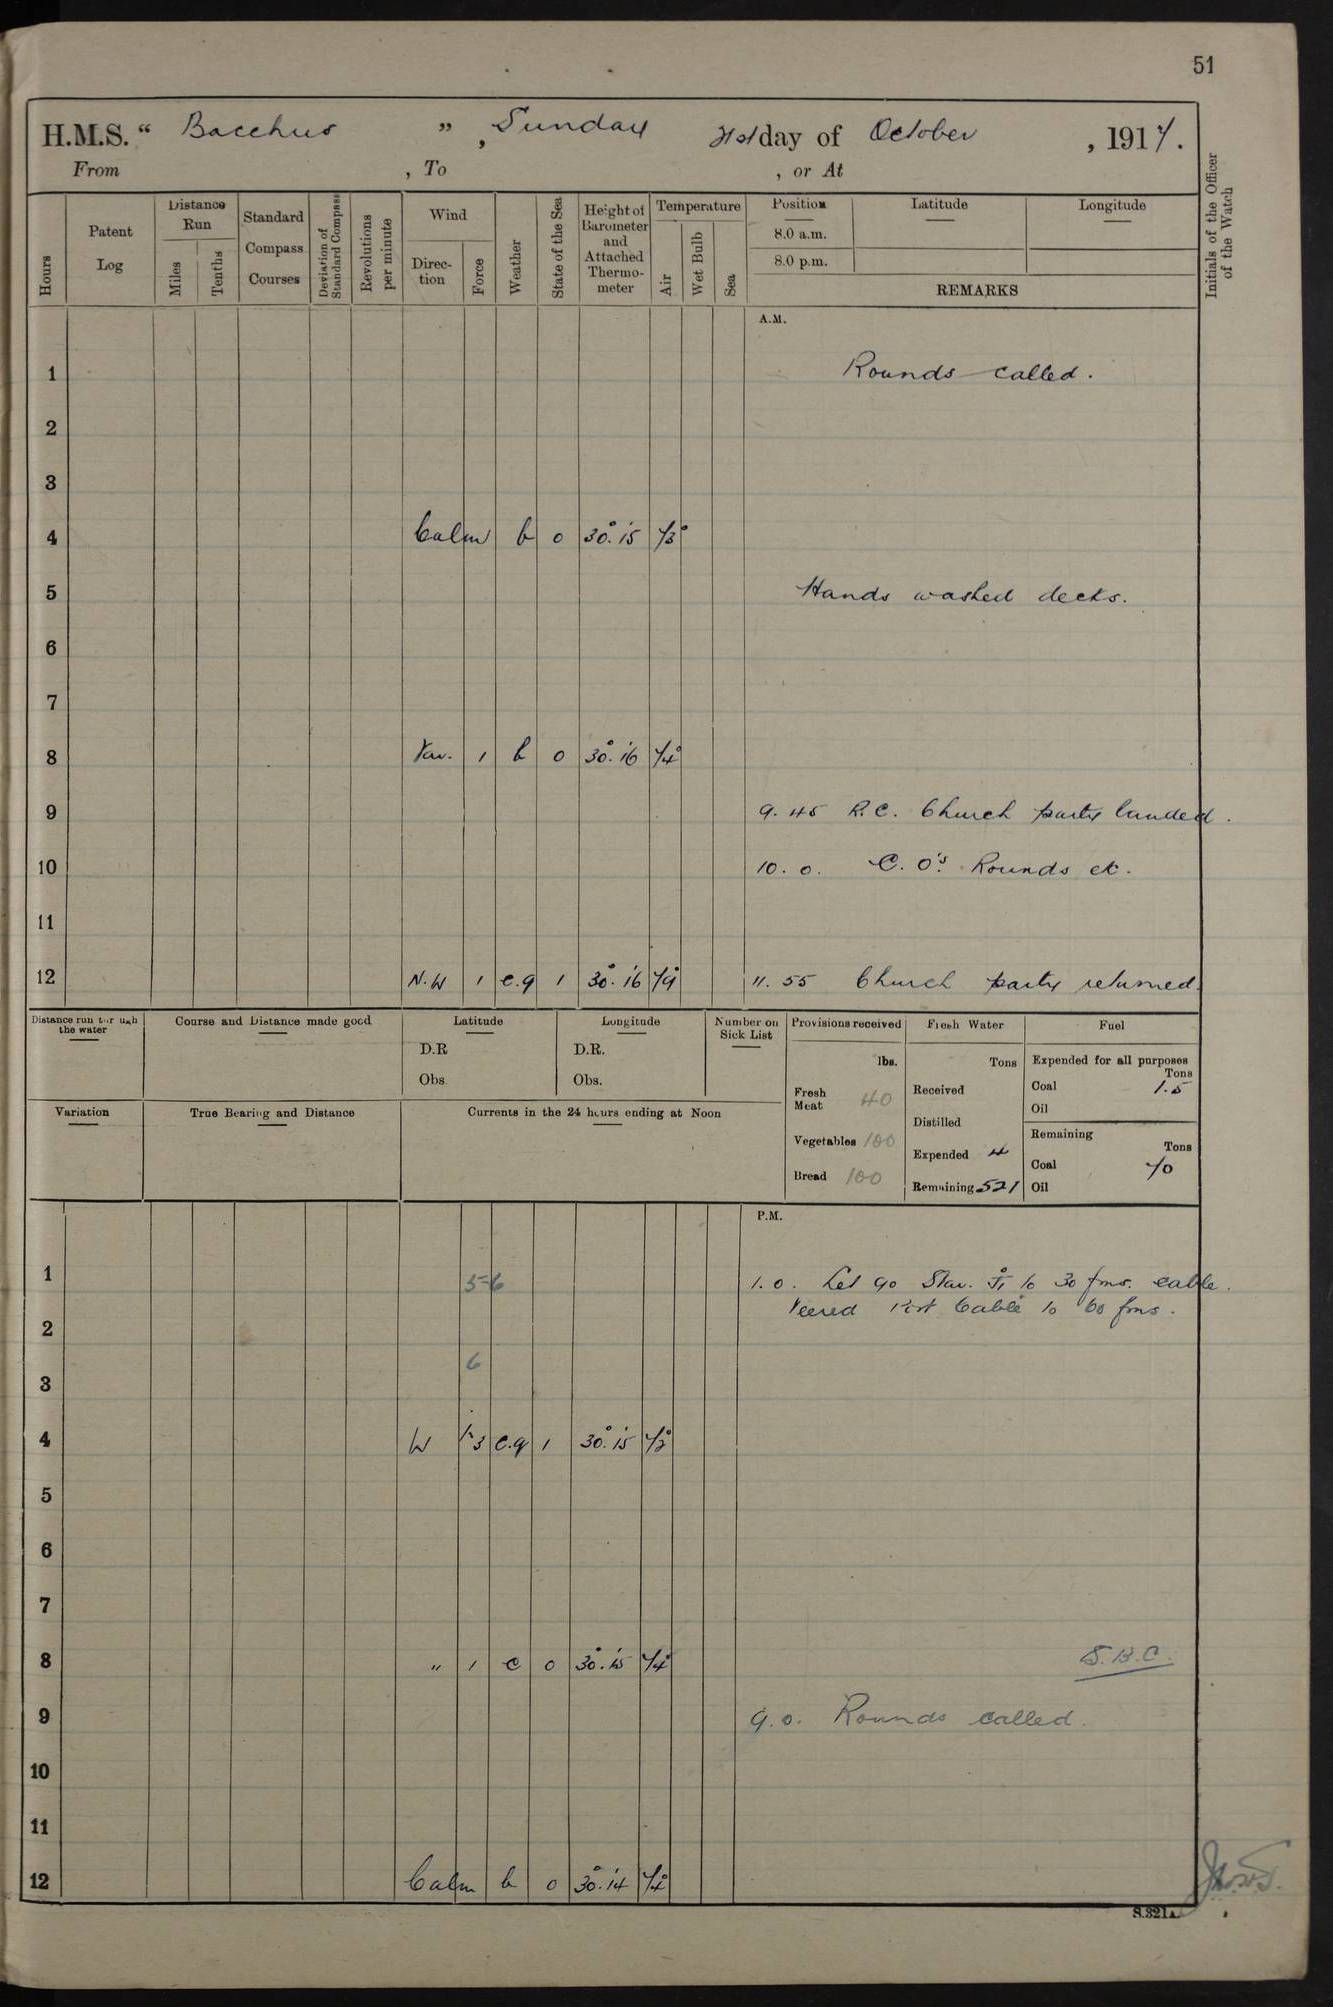 51
H.M.S. “ Bacchus ” , Sunday 21st day of October , 1917.
From , To , or At
Hours
Patent Log
Distance Run
Miles
Tenths
Standard Compass Courses
Deviation of Standard Compass
Revolutions per minute
Wind
Direction
Force
Weather
State of the Sea
Height of Barometer and Attached Thermometer
Temperature
Air
Wet Bulb
Sea
Position
8.0 a.m.
8.0 p.m.
Latitude
Longitude
REMARKS
Initials of the Officer of the Watch
A.M.
1 Rounds called.
2
3
4 Calm b 0 30.15 73°
5 Hands washed decks.
6
7
8 Var. 1 b 0 30.16 74°
9 9.45 R.C. Church party landed.
10 10.0. C.O's. Rounds etc.
11
12 N.W 1 c.q 1 30.16 79° 11.55 Church party returned.
Distance run through the water
Course and Distance made good
Latitude
D.R
Obs.
Longitude
D.R.
Obs.
Number on Sick List
Variation
True Bearing and Distance
Currents in the 24 hours ending at Noon
Provisions received
lbs.
Fresh Meat 40
Vegetables 100
Bread 100
Fresh Water
Tons
Received
Distilled
Expended 4
Remaining 521
Fuel
Expended for all purposes
Tons
Coal 1.5
Oil
Remaining
Tons
Coal 70
Oil
P.M.
1 5-6 1.0. Let go Star. to 30 fms. cable.
Veered Port Cable to 60 fms.
2
6
3
4 W 1-3 c.q 1 30.15 72°
5
6
7
8 " 1 c 0 30.15 74° S.B.C.
9 9.0. Rounds called.
10
11
12 Calm b 0 30.14 74°
S.321A.